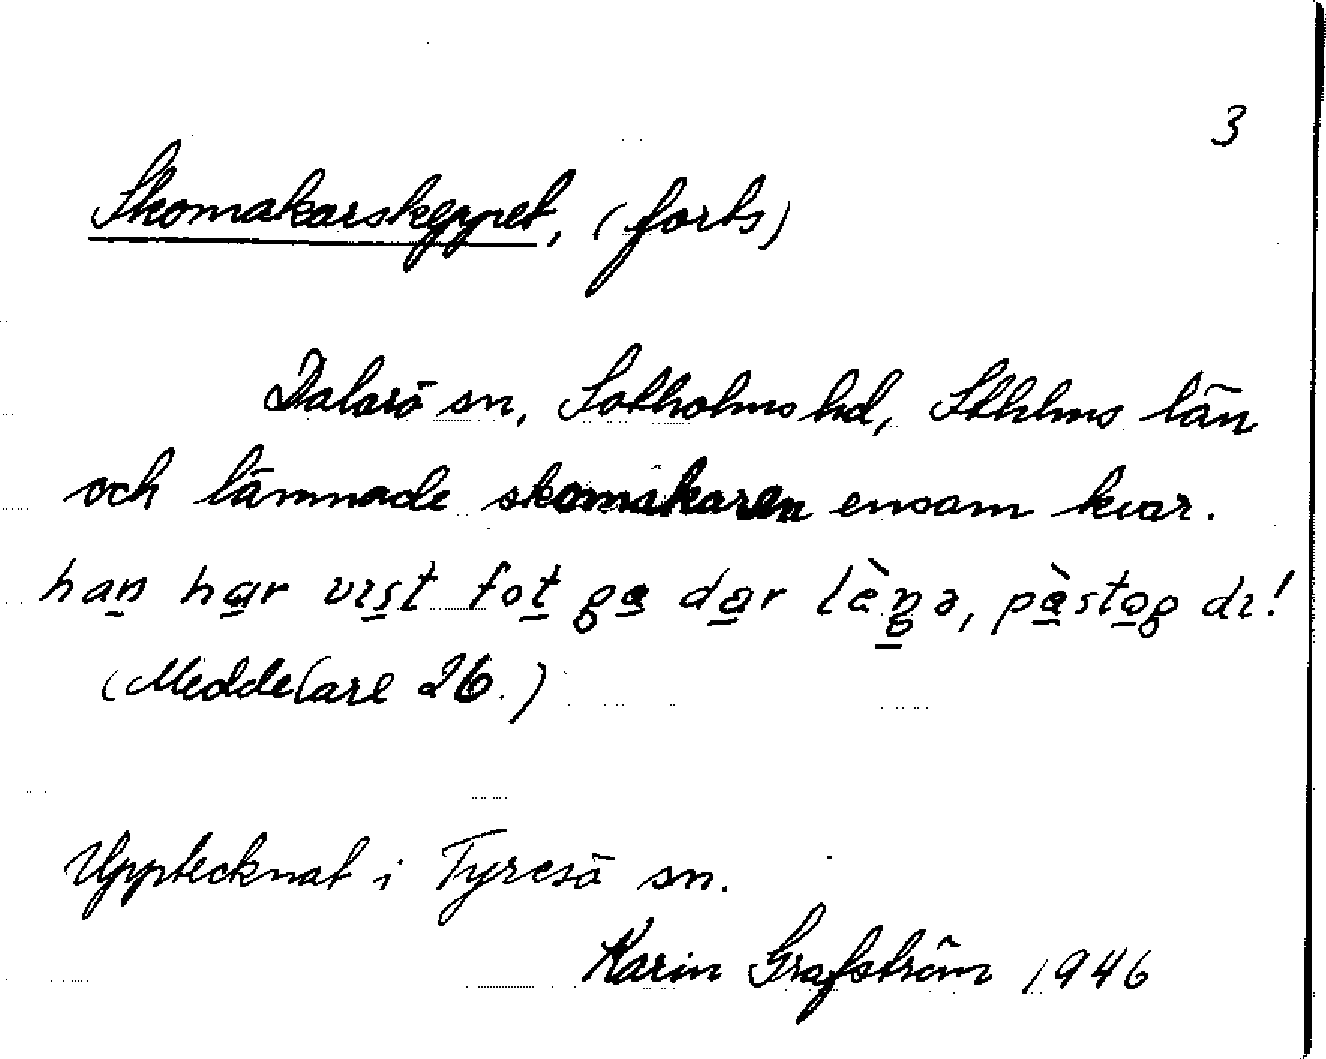 3
Skomakarskeppet, (forts)
Dalarö sn, Sotholms hd, Sthlms län
och lämnade skomakaren ensam kvar.
han har vist fot ga dar lèŋə, pàstog di!
(Meddelare 26.)
Upptecknat i Tyresö sn.
Karin Grafström 1946